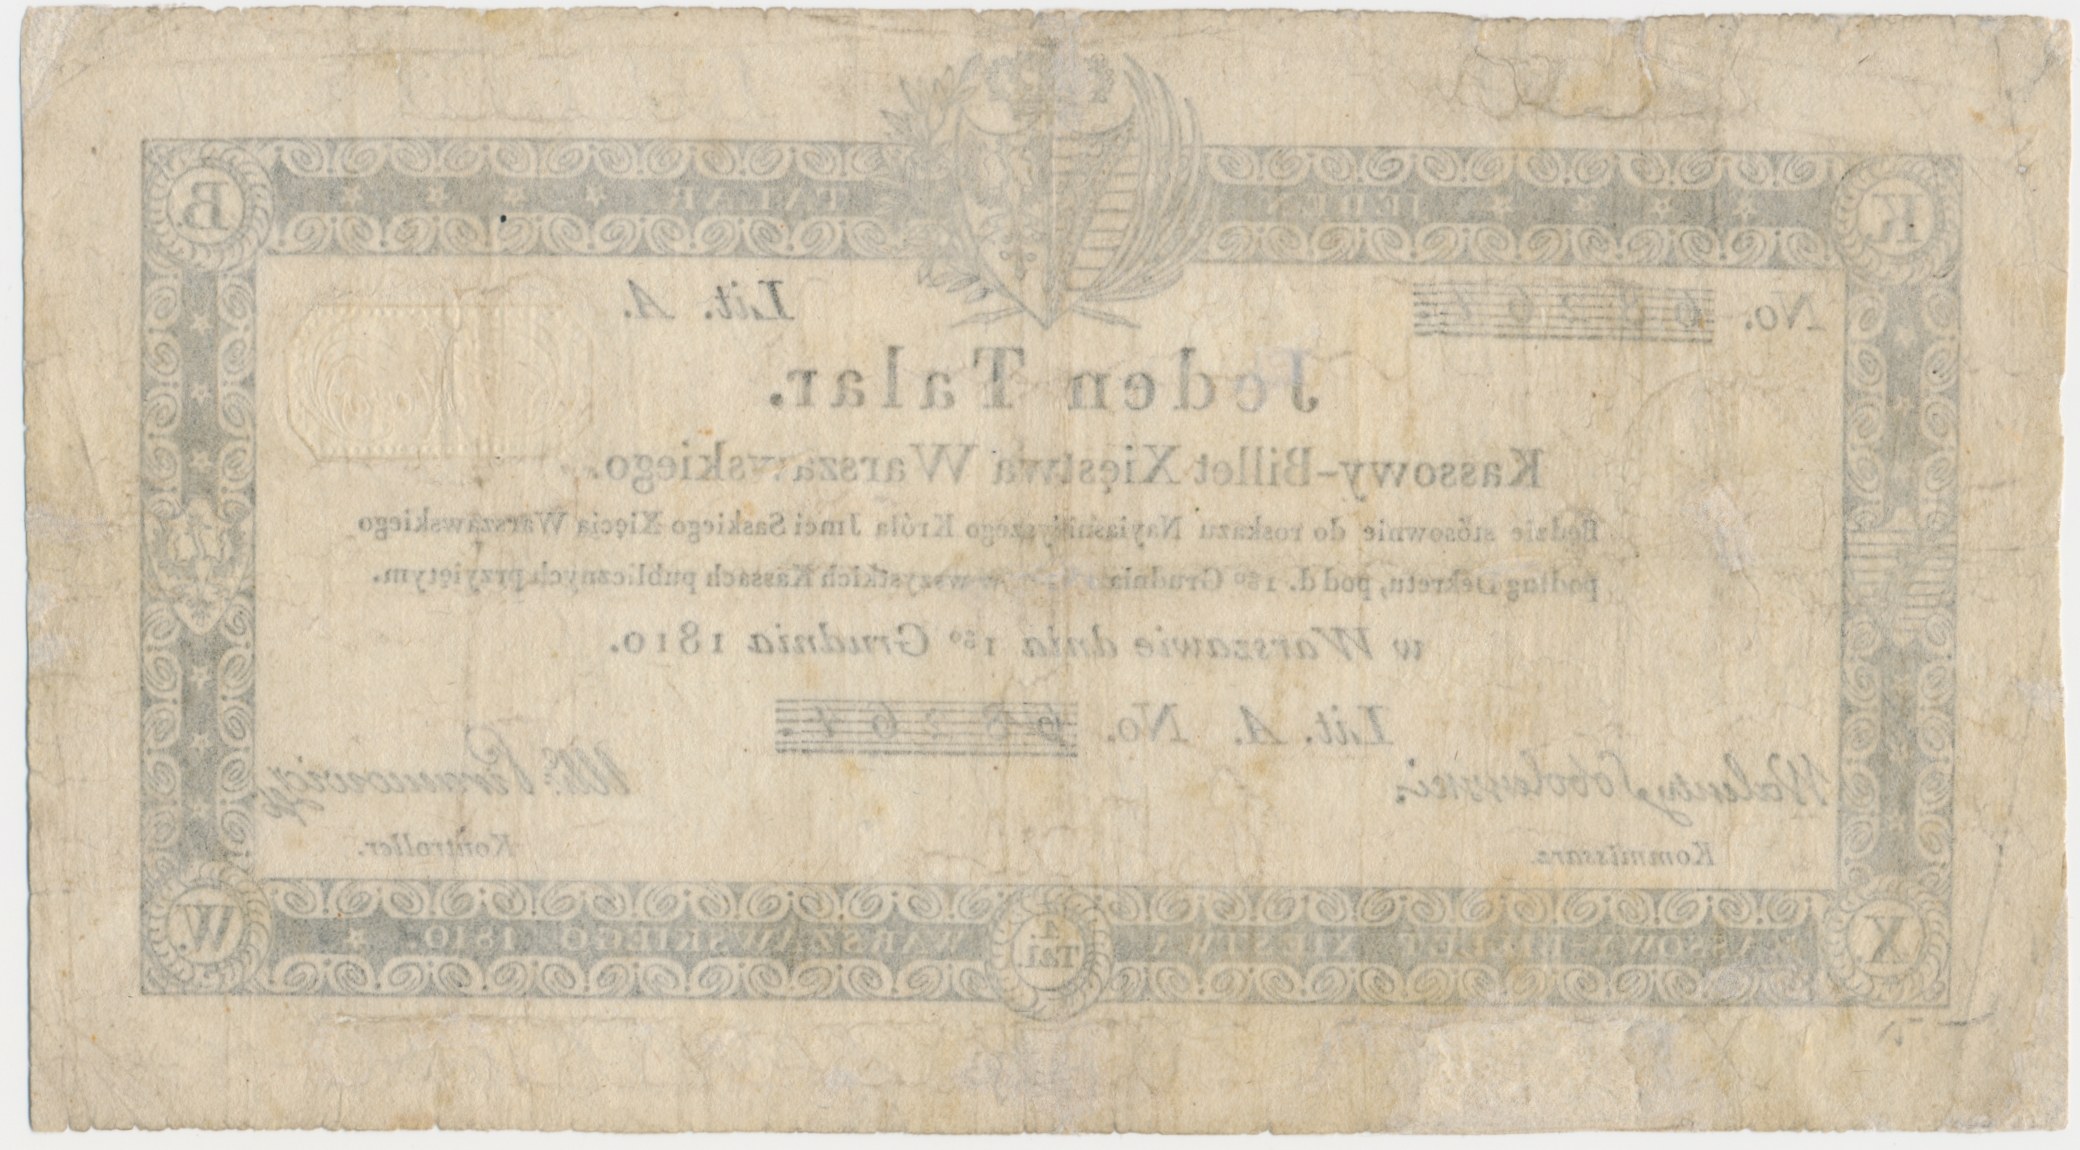 K. B.
JEDEN TALAR
No. 68261. Lit. A.
Jeden Talar.
Kassowy-Billet Xięstwa Warszawskiego.
Będzie stósownie do roskazu Nayiaśnieyszego Króla Jmci Saskiego Xięcia Warszawskiego
podług Dekretu, pod d. 1go Grudnia w wszystkich Kassach publicznych przyiętym.
w Warszawie dnia 1go Grudnia 1810.
Lit. A. No. 68261.
Walenty Sobolewski
Kommissarz. Kontroller.
X W.
KASSOWY-BILLET XIĘSTWA 1 Tal. WARSZAWSKIEGO 1810.